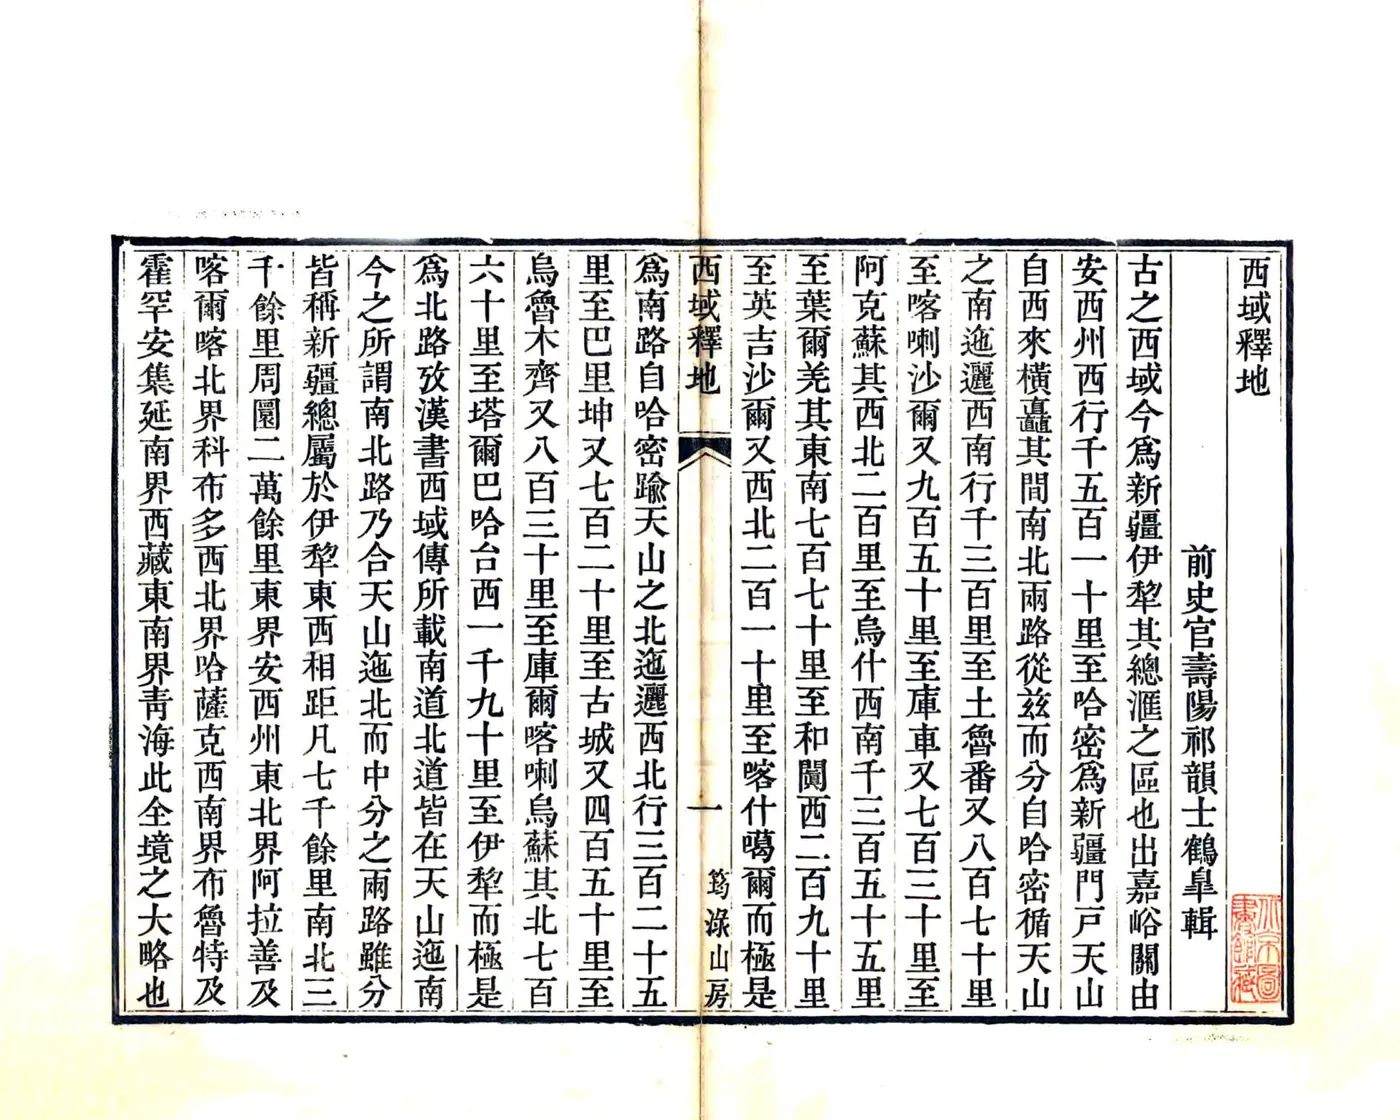 西域釋地
前史官壽陽祁韻士鶴皐輯
古之西域今爲新疆伊犂其總滙之區也出嘉峪關由
安西州西行千五百一十里至哈密爲新疆門戸天山
自西來橫矗其間南北兩路從兹而分自哈密循天山
之南迤邐西南行千三百里至土魯番又八百七十里
至喀喇沙爾又九百五十里至庫車又七百三十里至
阿克蘇其西北二百里至烏什西南千三百五十五里
至葉爾羌其東南七百七十里至和闐西二百九十里
至英吉沙爾又西北二百一十里至喀什噶爾而極是
西域釋地
一
筠渌山房
爲南路自哈密踰天山之北迤邐西北行三百二十五
里至巴里坤又七百二十里至古城又四百五十里至
烏魯木齊又八百三十里至庫爾喀喇烏蘇其北七百
六十里至塔爾巴哈台西一千九十里至伊犂而極是
爲北路攷漢書西域傳所載南道北道皆在天山迤南
今之所謂南北路乃合天山迤北而中分之兩路雖分
皆稱新疆總屬於伊犂東西相距凡七千餘里南北三
千餘里周圜二萬餘里東界安西州東北界阿拉善及
喀爾喀北界科布多西北界哈薩克西南界布魯特及
霍罕安集延南界西藏東南界靑海此全境之大略也